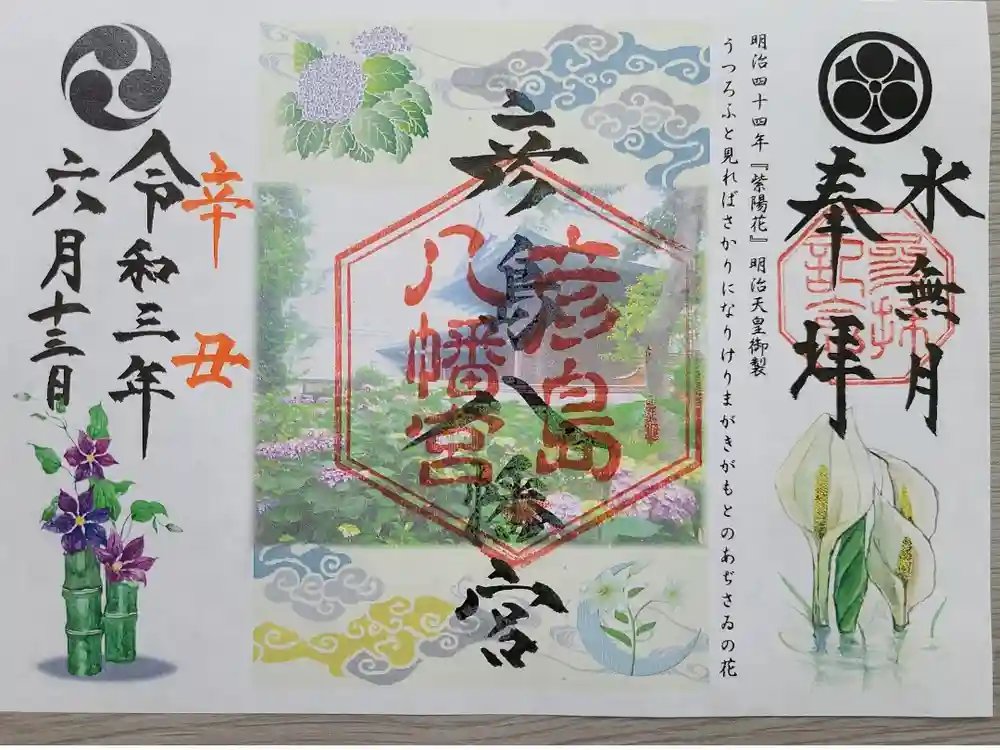 水無月
奉拝
明治四十四年『紫陽花』明治天皇御製
うつろふと見ればさかりになりけりまがきがもとのあぢさゐの花
彦島八幡宮
彦島
八幡宮
辛丑
令和三年
六月十三日